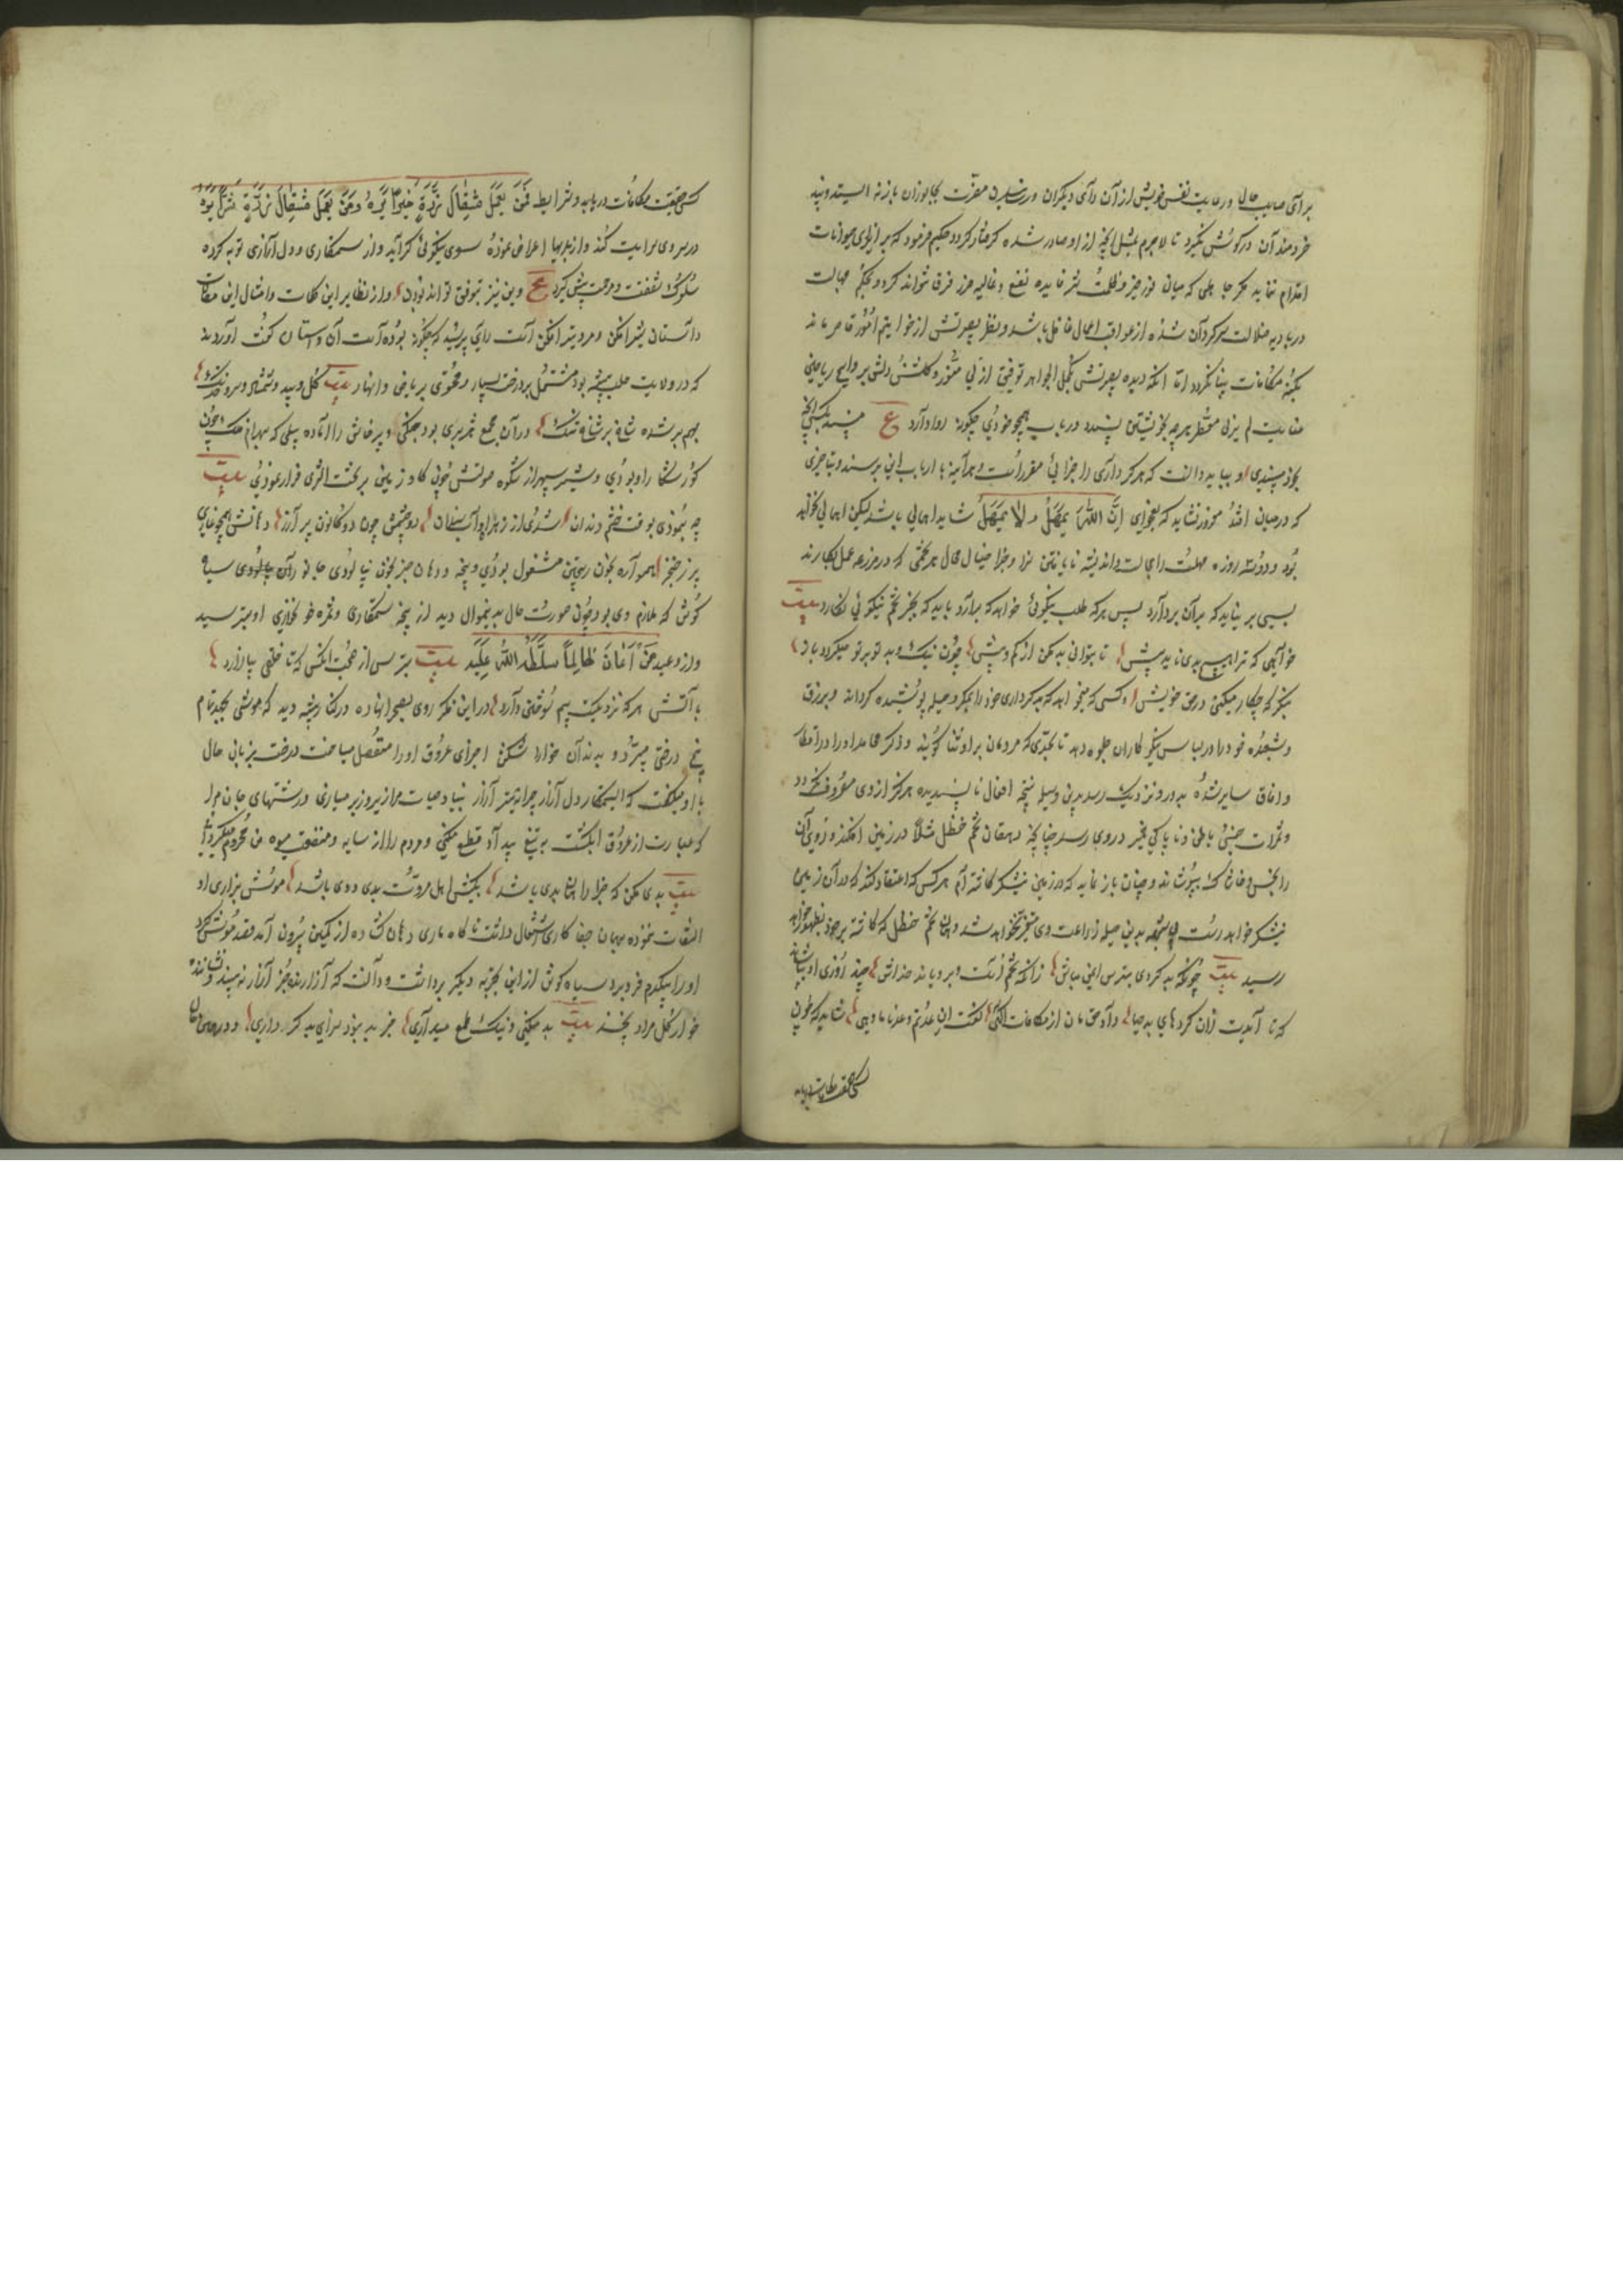 برای صلاح حال و رعایت نفس خویش از آن دآی دیکران و رسانیدن مضرت بجانوران باز نه ایستد و پند
خردمندان در کوش نکیرد تا لاجرم بمثل انچه از او صادر شده کرفتار کردد حکیم فرمود که بر ایذای حیوانات
اقدام ننماید مکر جاهلی که میان نور خیر و ظلمت شر فایده نفع و غایله ضرر فرق نتواند کرد و بحکم جهالت
در بادیه ضلالت سرکردان شده از عواقب اعمال غافل باشد و نظر بصیرتش از خواتیم امور قاصر ماند
بکنه مکافات بینا نکردد اما انکه دیده بصیرتش بکحل الجواهر توفیق ازلی منور و کلشن دلش بروایح ریاحین
عنایت لم یزلی معطر هر چه بخویشتن نپسندد در باب همچو خودی چکونه روا دارد ع مپسند بکس انچه
بخود نپسندی و بباید دانست که هر کرداری را جزائی مقرر است و هرآینه بارباب این برسد و بتاخیری
که در میان افتد مغرور نشاید که بفحوای اِنَّ اللّٰهَ یُمْهِلُ وَ لا یُهْمِلُ شاید امهالی باشد لیکن اهمالی نخواهد
بود و دو سه روزه مهلت را مجالست و اندیشه نایافتن سزا و جزا خیال محال هر تخمی که در مزرعه عمل بکارند
بسی بر نیاید که بر آن بردارد پس هر که طلب نیکوئی خواهد که برآرد باید که بجز تخم نیکوئی نکارد بیت
خواهی که ترا هیچ بدی ناید پیش تا بتوانی بد مکن از کم و بیش چون نیک و بد تو بر تو میکردد باز
بنکر که چکار میکنی در حق خویش و کسی که میخواهد که بدکرداری خود را بمکر و حیله پوشیده کرداند و بزرق
و شعبده خود را در لباس نیکوکاران جلوه دهد تا بحدی که مردمان بر او ثنا کویند و ذکر محامد او را در اقطار
و افاق سایر شده به دور و نزدیک رسد بدین وسیله نتیجه افعال ناپسندیده هرکز از وی مصروف نکردد
و ثمرات خبث باطن و ناپاکی ضمیر در وی رسد چنانچه دهقان تخم حنظل مثلاً در زمین افکند و روی آن
را بخس و خاشاک بپوشاند و چنان باز نماید که در زمین نیشکر کاشته‌ام هر کس که اعتقاد کند که در آن زمین
نیشکر خواهد رست بدین حیله زراعت وی متغیر نخواهد شد و همان تخم حنظل که کاشته بر خود بظهور خواهد
رسید بیت چونکه بد کردی بترس ایمن مباش زانکه تخم است و برویاند خداش چند روزی او بپوشاند
که تا آیدت زان کردهای بد حیا و آدمی
کسی حقیقت مکافات دریابد
کسی حقیقت مکافات دریابد و شرایط فَمَنْ یَعْمَلْ مِثْقالَ ذَرَّةٍ خَیْراً یَرَهُ وَ مَنْ یَعْمَلْ مِثْقالَ ذَرَّةٍ شَرّاً یَرَهُ
در وی سرایت کند و از بدیها اعراض نموده سوی نیکوئی کراید و از ستمکاری و دل آزاری توبه کرده
سلوک شفقت و مرحمت پیش کیرد ع وین نیز بتوفیق تواند بودن و از نظایر این کلمات و امثال این مقامات
داستان شیرافکن و مرد تیرافکن است رای پرسید که چکونه بوده است آن داستان کفت آورده‌اند
که در ولایت حلب بیشه بود مشتمل بر درخت بسیار و محتوی بر ریاض و انهار بیت کل و بید و شمشاد و سرو خدنک
بهم بر شده شاخ بر شاخ تنک در آن مجمع شیری بود جنکی و پرخاش را آماده پیلی که بهرام فلک چون
کور شکار او بودی و شیر سپهر از شکوه صولتش چون کاو زمین بر تحت الثری قرار نمودی بیت
چه بنمودی بوقت خشم دندان شدی از زهره آب سندان دو چشمش چون دو کانون پر آزر دهانش همچو غاری
پر ز خنجر همواره بخون ریختن مشغول بودی و پنجه و دهان جز بخون نیالودی جانوران سیاه
کوش که ملازم وی بود چون صورت حال بدینموال دید از پنجه ستمکاری و ثمره خونخواری او بترسید
و از وعید مَنْ اَعانَ ظالِماً سَلَّطَهُ اللّٰهُ عَلَیْه بیت بترس از صحبت انکس که تا خلقی بیازارد
بآتش هر که نزدیکست بیم سوختن دارد در این فکر روی بصحرا نهاده در کنار بیشه دید که موشی بجد تمام
بیخ درختی میبرد و به دندان خارا شکن اجزای عروق او را منفصل میساخت درخت بزبان حال
با او میکفت که ای ستمکار دل آزار چرا به تیشه آزار بنیاد حیات مرا زیر و زبر میسازی و رشتهای جان مرا
که عبارت از عروق ابکش است به تیغ بیداد قطع میکنی و مردم را از سایه و منفعت میوه من محروم میکردانی
بیت بدی مکن که جزا را همان بدی باشد بکیش اهل مروت بدی ددی باشد موش بزاری او
التفات ننموده بهمان جفا کاری اشتغال داشت ناکاه ماری دهان کشاده از کمین بیرون آمد قصد موش کرد
او را بیکدم فرو برد سیاه کوش از این تجربه دیکر برداشت و دانست که آزارنده جز آزار نه بیند و نشاننده
خار کل مراد نچیند بیت بد میکنی و نیک طمع میداری جز بد نبود سزای بد کرداری